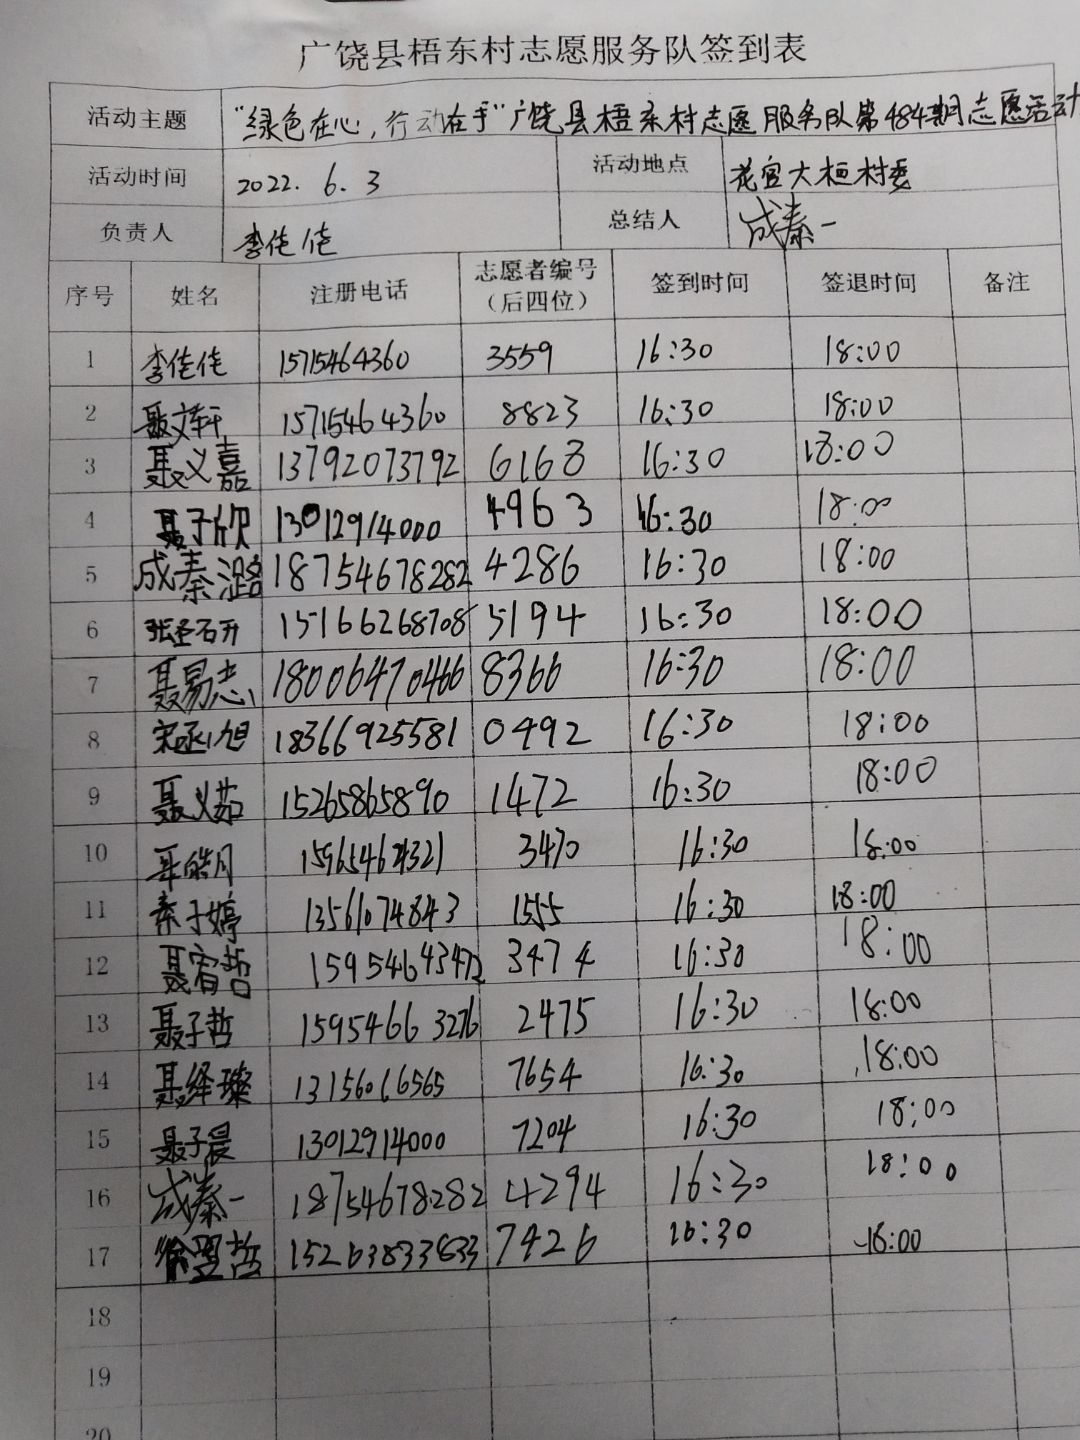 广饶县梧东村志愿服务队签到表
活动主题 “绿色在心，行动在手”广饶县梧东村志愿服务队第484期志愿活动
活动时间 2022. 6. 3 活动地点 花官大桓村委
负责人 李佬佬 总结人 成秦一
序号 姓名 注册电话 志愿者编号（后四位） 签到时间 签退时间 备注
1 李佬佬 15715464360 3559 16:30 18:00
2 聂文轩 15715464360 8823 16:30 18:00
3 聂义嘉 13792073792 6168 16:30 18:00
4 聂子欣 13012914000 4963 16:30 18:00
5 成秦潞 18754678282 4286 16:30 18:00
6 15166268708 5194 16:30 18:00
7 聂易志 18006470466 8366 16:30 18:00
8 宋丞旭 18366925581 0492 16:30 18:00
9 聂义茹 15265865890 1472 16:30 18:00
10 皓月 3470 16:30 18:00
11 秦子婷 13561074843 1555 16:30 18:00
12 聂宥哲 3474 16:30 18:00
13 聂子哲 15954663276 2475 16:30 18:00
14 聂绎璨 13156016565 7654 16:30 18:00
15 聂子晨 13012914000 7204 16:30 18:00
16 成秦一 18754678282 4294 16:30 18:00
17 哲 15263833633 7426 16:30 18:00
18
19
20